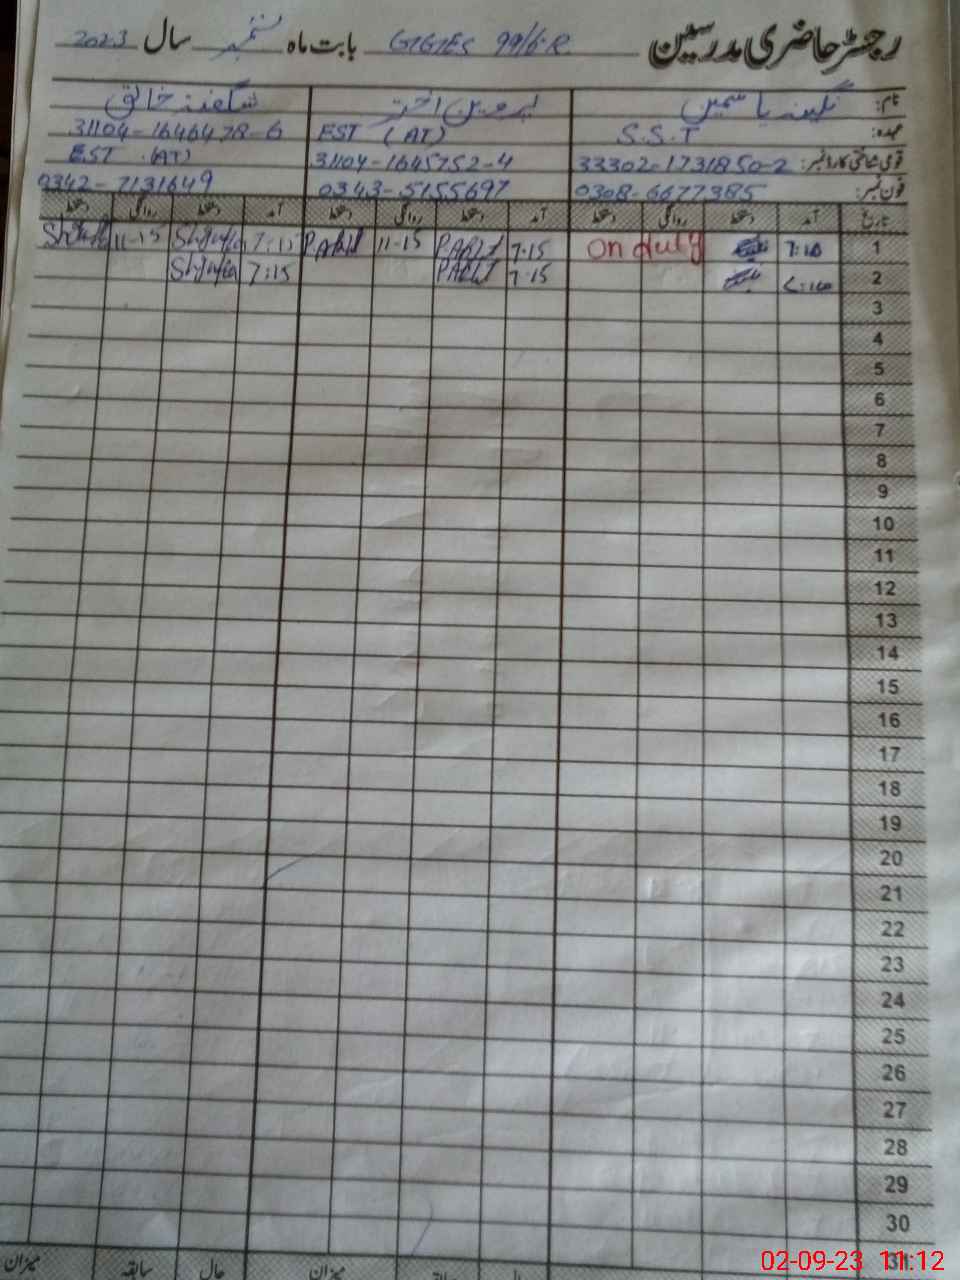 رجسٹر حاضری مدرسین GGES 99/6-R بابت ماہ ستمبر سال 2023
نام: نگینہ یاسمین پروین اختر شگفتہ خالق
عہدہ: S.S.T EST (AT) 31104-1646478-6
قومی شناختی کارڈ نمبر: 33302-1731850-2 31104-1645752-4 EST (AT)
فون نمبر: 0308-6677385 0343-5155697 0342-7131649
تاریخ آمد دستخط روانگی دستخط آمد دستخط روانگی دستخط آمد دستخط روانگی دستخط
1 7:10 on duty 7.15 11-15 7:15 11-15
2 7.15 7:15
3
4
5
6
7
8
9
10
11
12
13
14
15
16
17
18
19
20
21
22
23
24
25
26
27
28
29
30
31
میزان حال سابقہ میزان
02-09-23 11:12